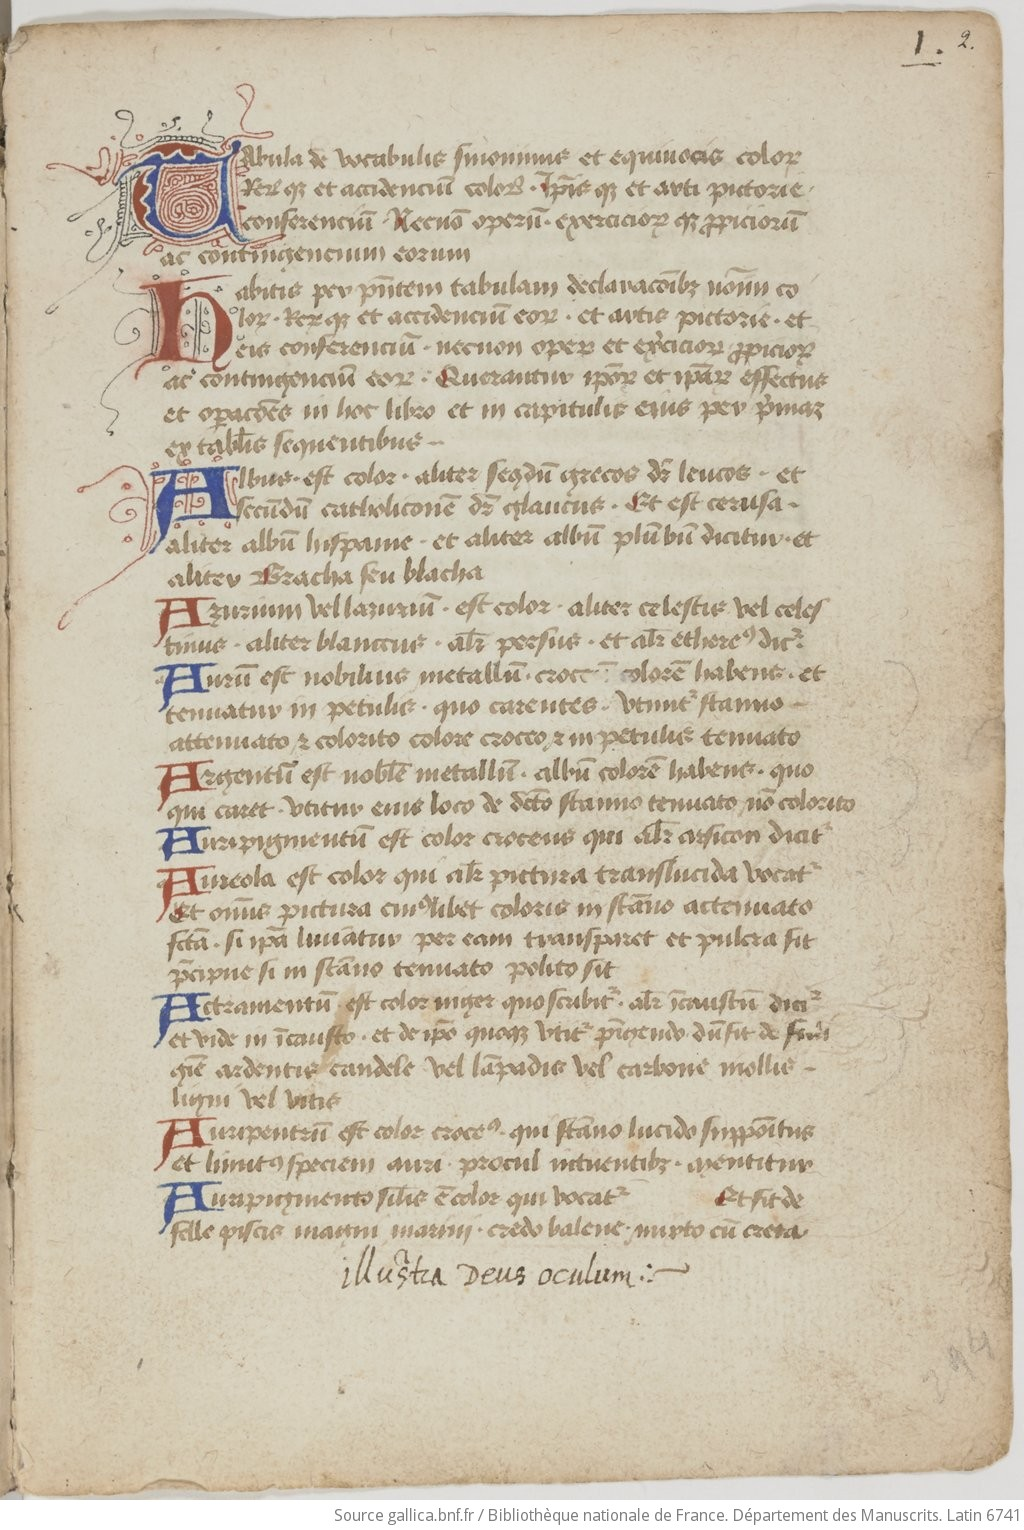 1. 2.
Tabula de vocabulis sinonimis et equivocis coloꝝ
Reꝝ qꝫ et accidenciū coloꝝ · Ip̄is qꝫ et arti pictorie
conferenciū · Necnō operū · exercicioꝝ qꝫ ꝓpiciorū
ac contingencium eorum
Habitis per pn̄tem tabulam declaracōibꝫ noīm co
loꝝ · Reꝝ qꝫ et accidenciū eoꝝ · et artis pictorie · et
eis conferenciū · necnon opeꝝ et ex̄cicioꝝ ꝓpicioꝝ
ac contingenciū eoꝝ · Querantur ip̄oꝝ et ip̄aꝝ effectus
et oꝑacōes in hoc libro et in capitulis eius per
ex tabl̄is sequentibus –
Albus · est color · aliter seqdū grecos dr̄ leucos · et
secūdū catholiconē dr̄ glaucus · Et est cerusa –
aliter albū hispanie · et aliter albū plūbū dicitur · et
aliter Bracha seu blacha
Azurium vel lazuriū · est color · aliter celestis vel celes
tinus · aliter blanccus · alr̄ persus · et alr̄ ethereꝰ dicr̄
Aurū est nobilius metallū · croce colorē habens · et
tenuatur in petulis · quo carentes · vtunt᷑ stanno –
attenuato ⁊ colorito colore croceo ⁊ in petulis tenuato
Argentū est nobl̄e metallū · albū colorē habens · quo
qui caret · vtitur eius loco de dc̄to stanno tenuato nō colorito
Auripigmentū est color croceus qui alr̄ arsicon dicit᷑
Aureola est color qui alr̄ pictura translucida vocat᷑
Et om̄is pictura cuiꝰlibet coloris in stāno actenuato
fc̄ta · si ip̄a liniatur per eam transparet et pulcra fit
p̄cipue si in stāno tenuato polito sit
Actramentū est color niger quo scribit᷑ · alr̄ īcaustū dicit᷑
et vide in īcausto · et de ip̄o quoqꝫ vtit᷑ pīgendo dū fit de fuli
gīe ardentis candele vel lāpadis vel carbone mollis –
ligni vel vitis
Auripentrū est color croceꝰ · qui stāno lucido suppōitus
et linitꝰ speciem auri · procul intuentibꝫ · mentitur
Auripigmento sil̄is ē color qui vocat᷑ Et fit de
felle piscis magni marini · credo balene · mixto cū creta
illustra Deus oculum :~
294
Source gallica.bnf.fr / Bibliothèque nationale de France. Département des Manuscrits. Latin 6741